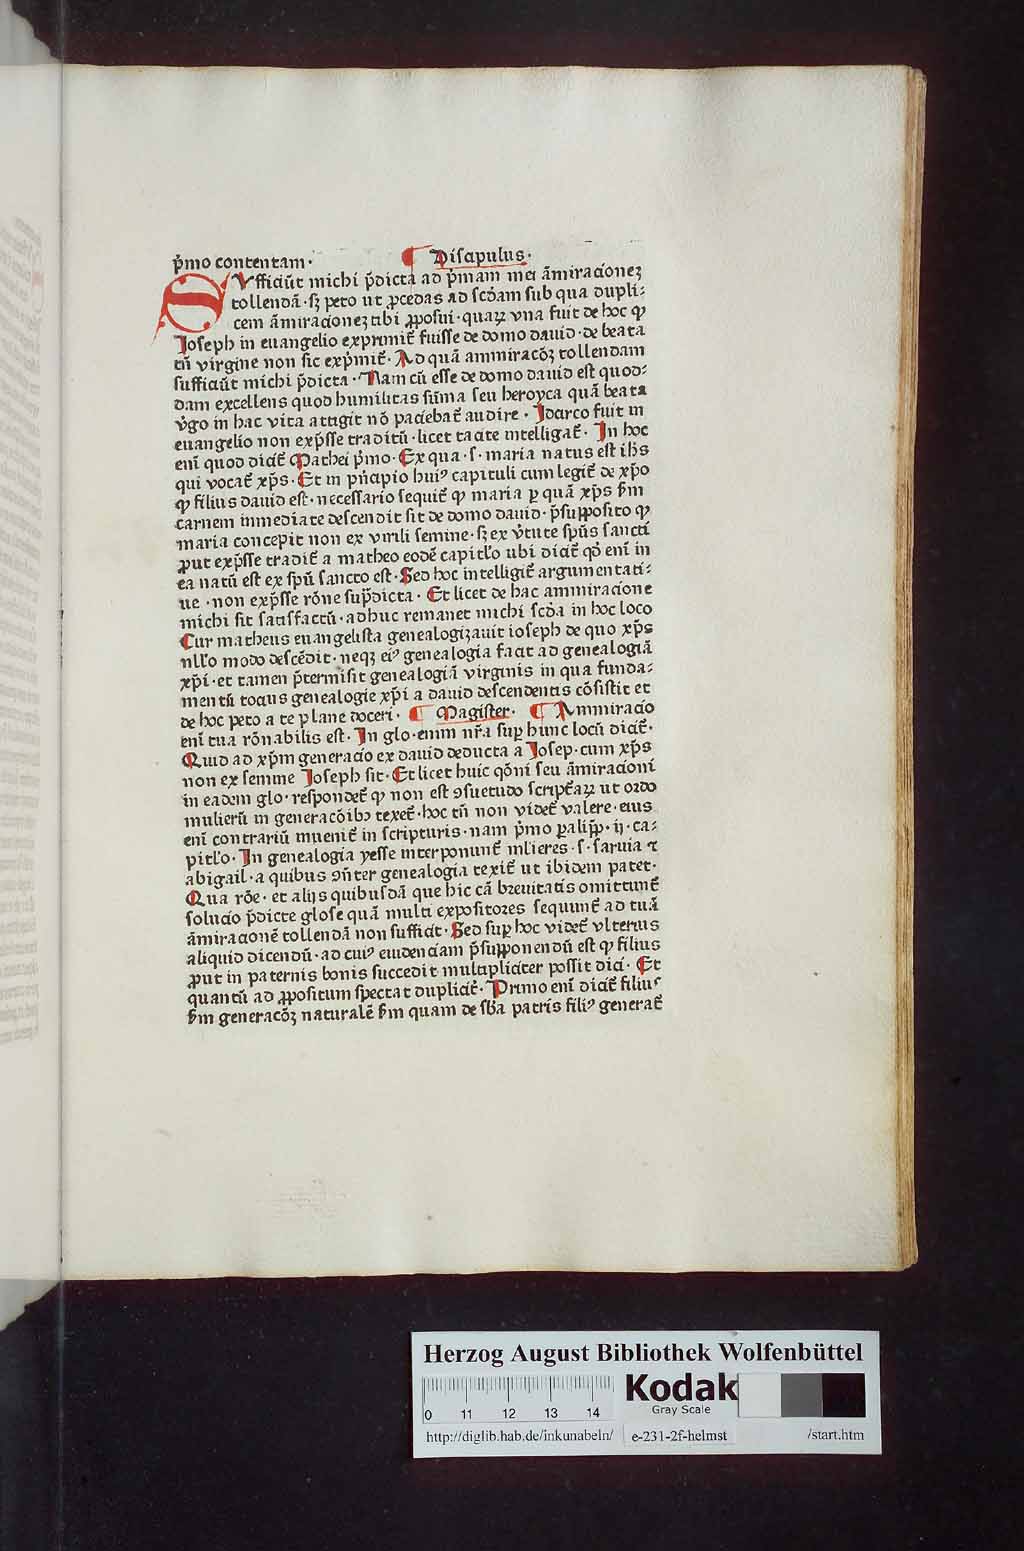 p̄mo contentam· ¶ Discipulus·
SVfficiūt michi p̄dicta ad p̄mam mei āmiracioneꝫ
tollendā· sꝫ peto ut ꝓcedas ad scḋam sub qua dupli⸗
cem āmiracioneꝫ tibi ꝓposui· quaꝝ vna fuit de hoc ꝙ
Joseph in euangelio exprimit̄ fuisse de domo dauid· de beata
tn̄ virgine non sic exp̄mit̄· Ad quā ammiracōꝫ tollendam
sufficiūt michi p̄dicta· Nam cū esse de domo dauid est quod⸗
dam excellens quod humilitas sūma seu heroyca quā beata
v̄go in hac vita attigit nō paciebat̄ audire· Jdarco fuit in
euangelio non exp̄sse traditū· licet tacite intelligat̄· Jn hoc
enī quod dicit̄ Mathei p̄mo· Ex qua· s· maria natus est ih̄s
qui vocat̄ xp̄s· Et in pn̄cipio huiꝰ capituli cum legit̄ de xp̄o
ꝙ filius dauid est· necessario sequit̄ ꝙ maria ꝑ quā xp̄s ẜm
carnem inmediate descendit sit de domo dauid· p̄supposito ꝙ
maria concepit non ex virili semine· sꝫ ex v̄tute spūs sancti
ꝓut exp̄sse tradit̄ a matheo eodē capitl̄o ubi dicit̄ qḋ enī in
ea natū est ex spū sancto est· Sed hoc intelligit̄ argumentati⸗
ue· non exp̄sse rōne sup̄dicta· Et licet de hac ammiracione
michi sit satisfactū· adhuc remanet michi scḋa in hoc loco
Cur matheus euangelista genealogizauit ioseph de quo xp̄s
nll̄o modo descēdit· neqꝫ eiꝰ genealogia facit ad genealogiā
xp̄i· et tamen p̄termisit genealogiā virginis in qua funda⸗
mentū tocius genealogie xp̄i a dauid descendentis cōsistit et
de hoc peto a te plane doceri· ¶ Magister· ¶ Ammiracio
enī tua rōnabilis est· Jn glo· enim nr̄a suꝑ hunc locū dicit̄·
Quid ad xp̄m generacio ex dauid deducta a Josep· cum xp̄s
non ex semine Joseph sit· Et licet huic qōni seu āmiracioni
in eadem glo· respondet̄ ꝙ non est ꝯsuetudo script̄aꝝ ut ordo
mulierū in generacōibꝫ texet̄· hoc tn̄ non videt̄ valere· eius
enī contrariū inuenit̄ in scripturis· nam p̄mo ꝑalip̄p· ij· ca⸗
pitl̄o· Jn genealogia yesse interponunt̄ ml̄ieres· s· saruia ⁊
abigail· a quibus ꝯn̄ter genealogia texit̄ ut ibidem patet·
Qua rōe· et alijs quibusdā que hic cā breuitatis omittunt̄
solucio p̄dicte glose quā multi expositores sequunt̄ ad tuā
āmiracionē tollendā non sufficit· Sed suꝑ hoc videt̄ vlterius
aliquid dicendū· ad cuiꝰ euidenciam p̄supponendū est ꝙ filius
ꝓut in paternis bonis succedit multipliciter possit dici· Et
quantū ad ꝓpositum spectat duplicit̄· Primo enī dicit̄ filius
ẜm generacōꝫ naturalē ẜm quam de sb̄a patris filiꝰ generat̄
Herzog August Bibliothek Wolfenbüttel
0 11 12 13 14
Kodak
Gray Scale
http://diglib.hab.de/inkunabeln/ e-231-2f-helmst /start.htm